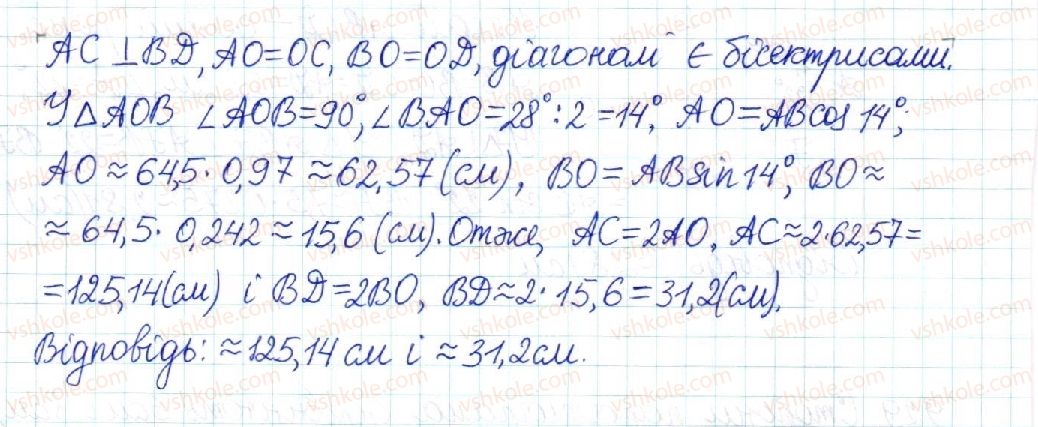 AC ⊥ BD, AO=OC, BO=OD, діагоналі є бісектрисами.
У △ AOB ∠AOB=90°, ∠BAO=28°:2=14°. AO=ABcos 14°;
AO ≈ 64,5·0,97 ≈ 62,57 (см), BO=ABsin14°, BO≈
≈ 64,5· 0,242 ≈ 15,6 (см). Отже, AC=2AO, AC≈2·62,57=
=125,14(см) і BD=2BO, BD≈2·15,6=31,2(см).
Відповідь: ≈125,14 см і ≈31,2см.